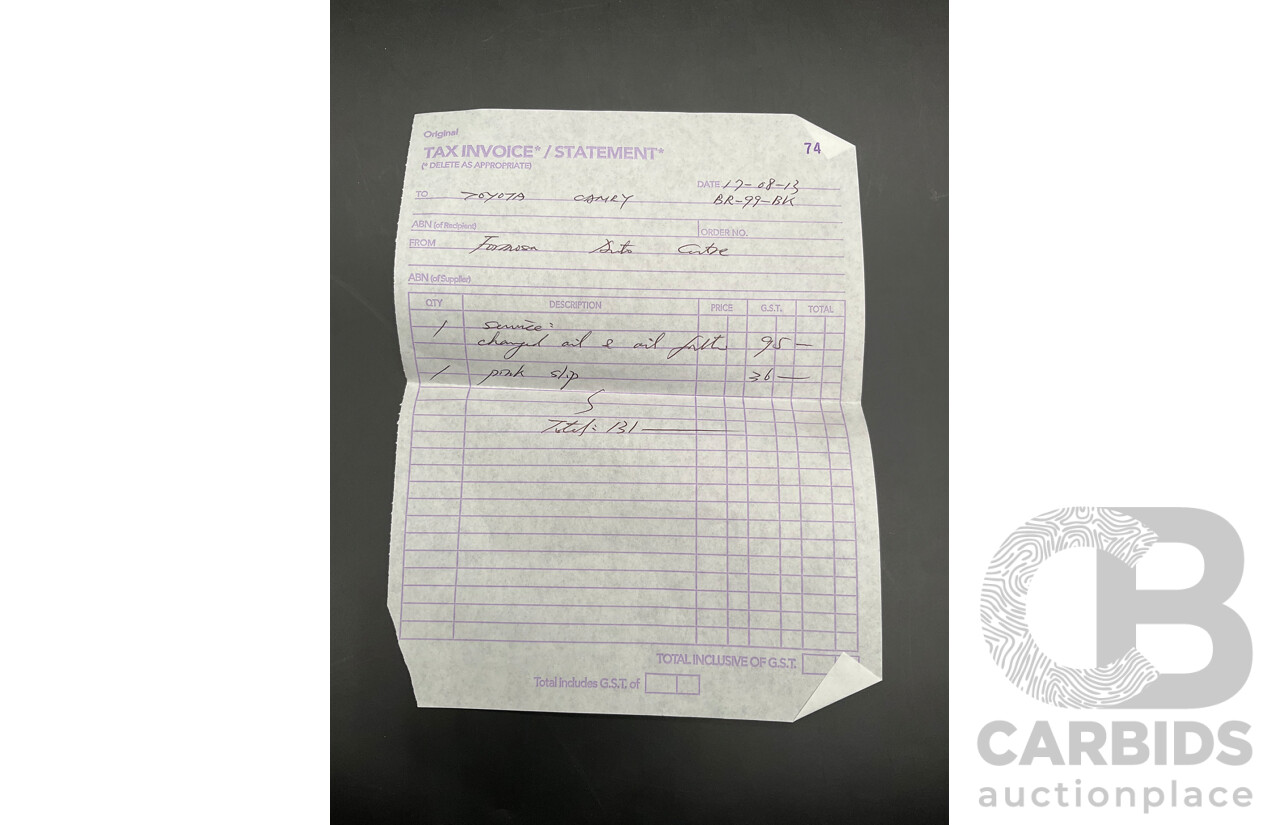 Original
TAX INVOICE* / STATEMENT*
74
(* DELETE AS APPROPRIATE)
DATE 17-08-13
TO TOYOTA CAMRY BR-99-BK
ABN (of Recipient) ORDER NO.
FROM Formosa Auto Centre
ABN (of Supplier)
QTY DESCRIPTION PRICE G.S.T. TOTAL
1 service:
changed oil & oil filter 95 —
1 pink slip 36 —
Total: 131 —
TOTAL INCLUSIVE OF G.S.T.
Total includes G.S.T. of
CB
CARBIDS
auctionplace